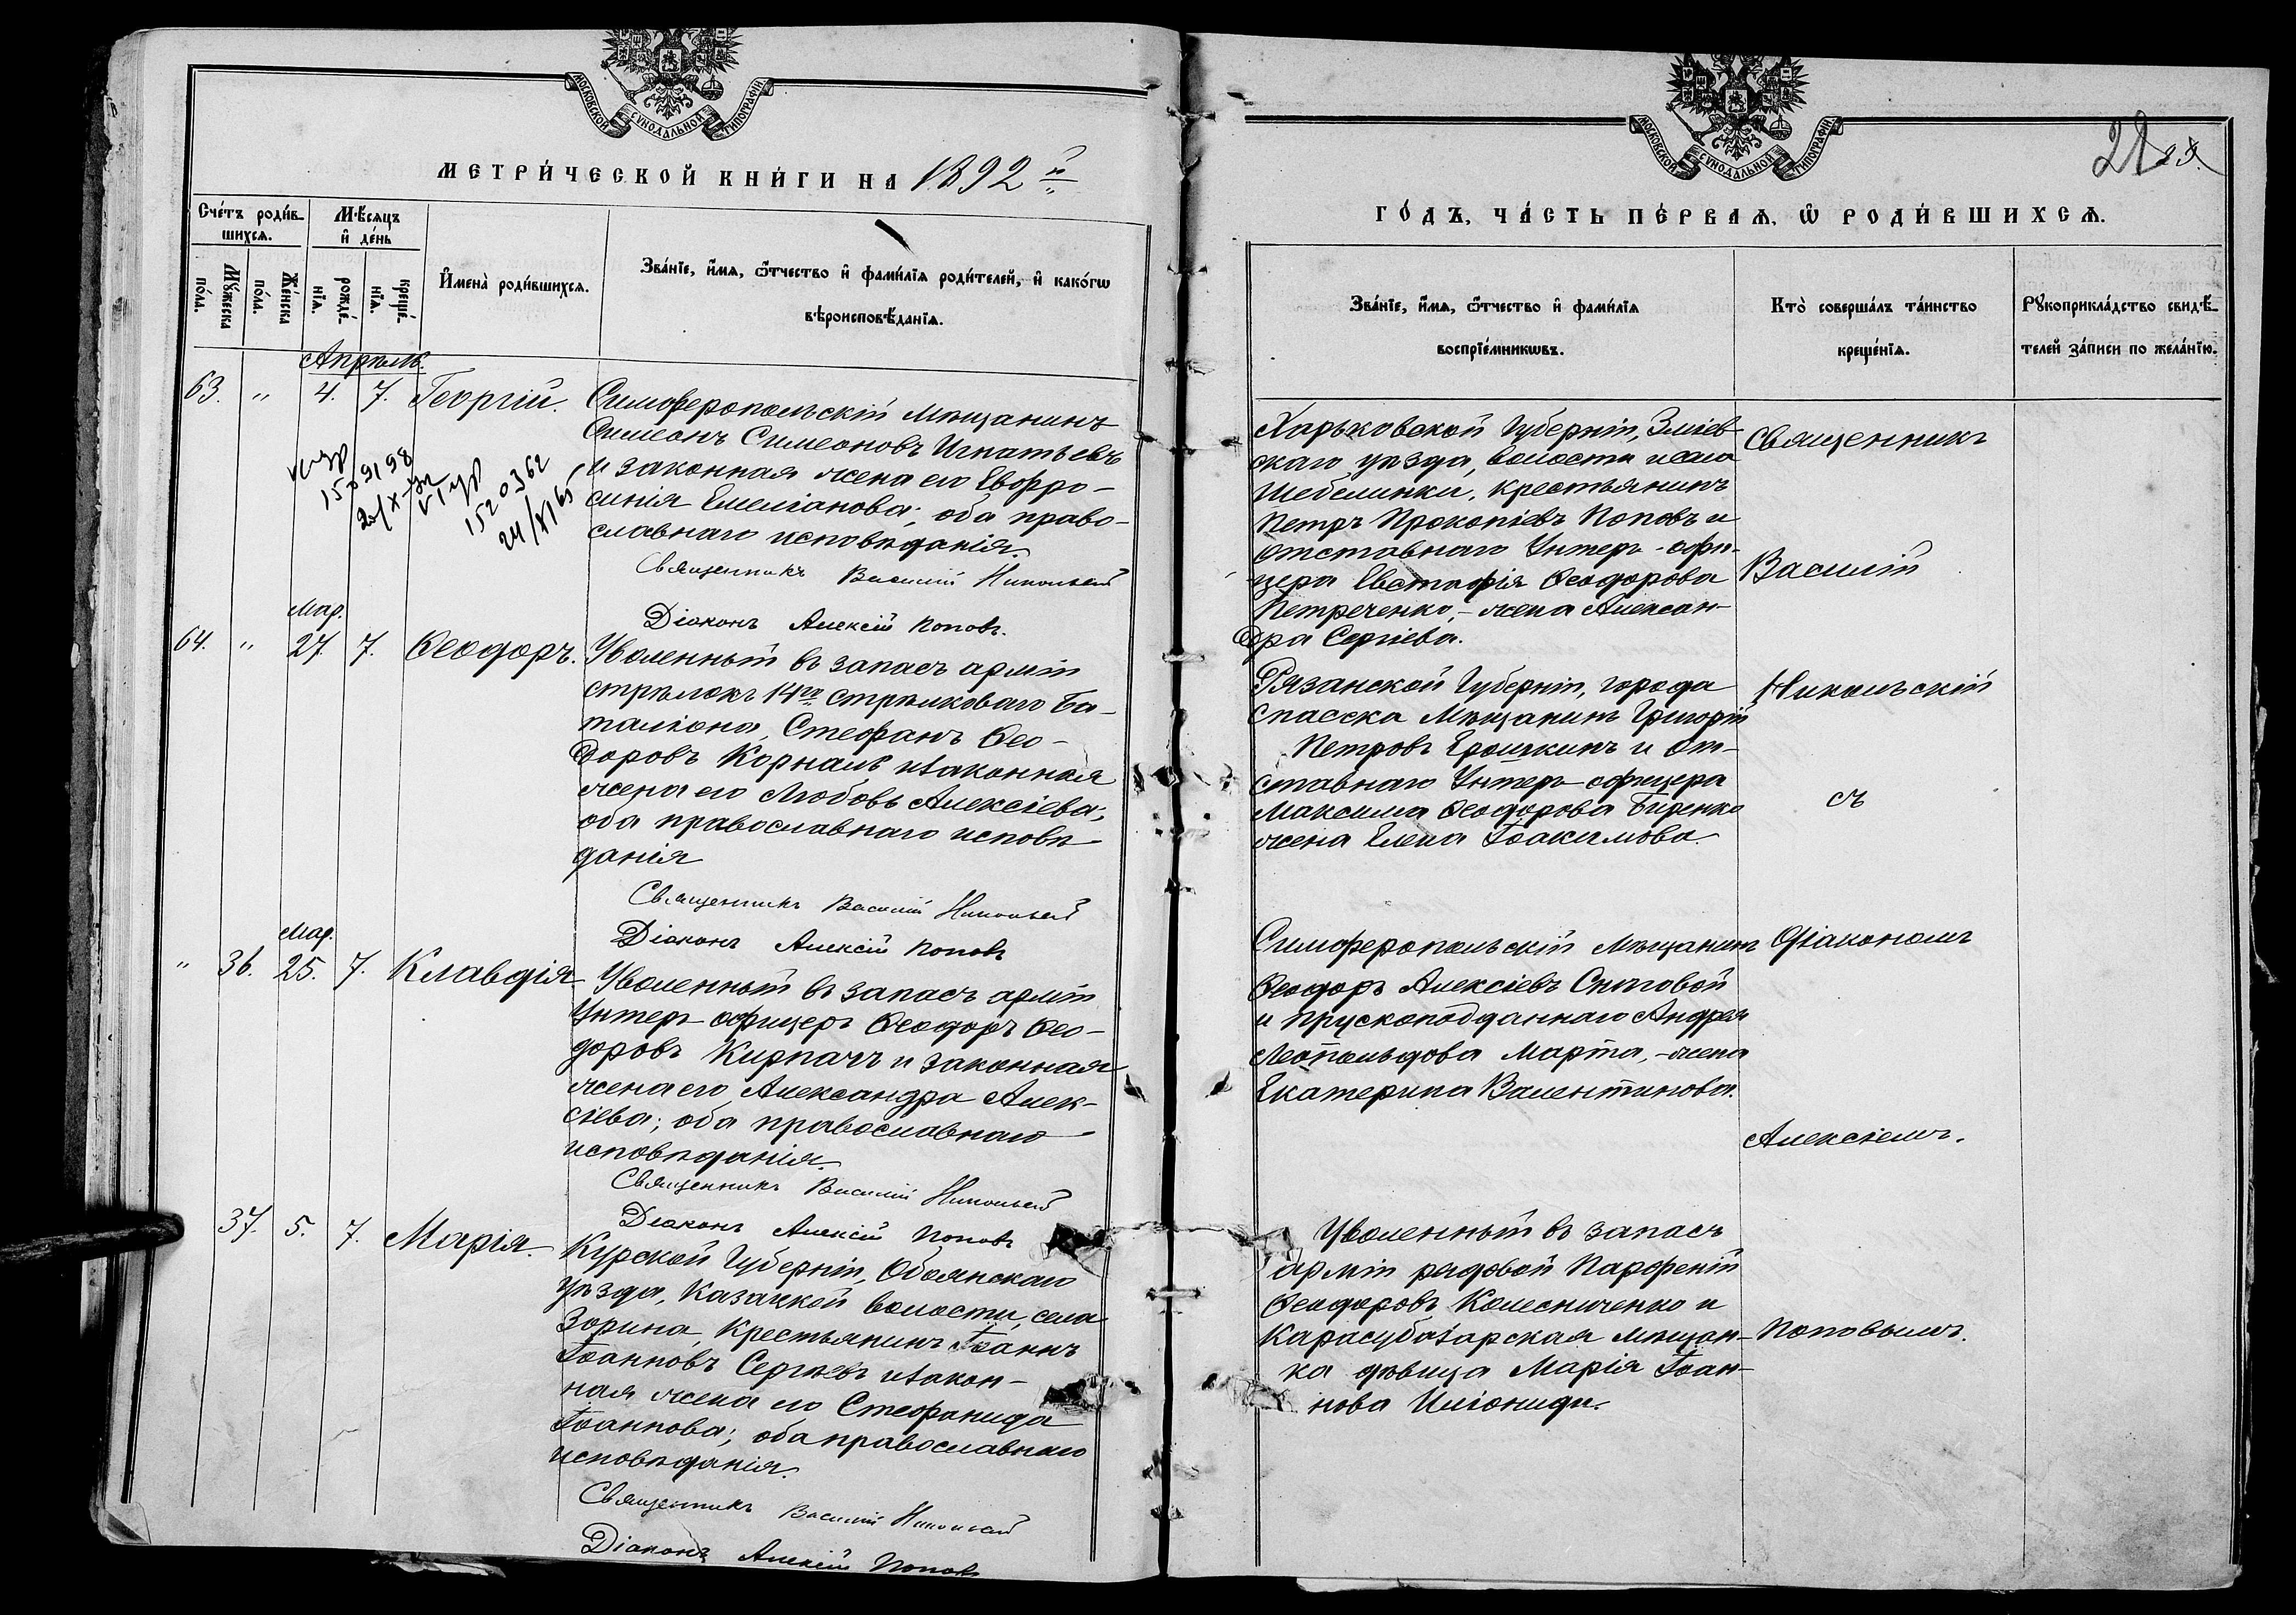 МОСКОВСКОЙ СѴНОДАЛЬНОЙ ТИПОГРАФІИ
МЕТРИ́ЧЕСКОЙ КНИ́ГИ НА 1892 й
Сче́тъ роди́в-
шихсѧ.
Мꙋ́жеска
по́ла.
Же́нска
по́ла.
Мѣ́сѧцъ
и҆ де́нь
рожде́-
нїѧ.
креще́-
нїѧ.
И҆мена̀ роди́вшихсѧ.
Зва́нїе, и҆́мѧ, ѻ҆́тчество и҆ фами́лїѧ роди́телей, и҆ како́гѡ
вѣроисповѣ́данїѧ.
Апрѣль.
63. " 4. 7. Георгій.
Симферопольскій Мѣщанинъ
Симеонъ Симеоновъ Игнатьевъ
и законная жена его Евфро-
синія Емеліанова; оба право-
славнаго исповѣданія.
Священникъ Василій Никольскій
Діаконъ Алексій Поповъ.
1520362
24/XI 65
Мар.
64. " 27. 7. Ѳеодоръ.
Уволенный въ запасъ арміи
стрѣлокъ 14го стрѣлковаго Ба-
таліона, Стефанъ Ѳео-
доровъ Корналь и законная
жена его Любовь Алексіева;
оба православнаго исповѣ-
данія
Священникъ Василій Никольскій
Діаконъ Алексій Поповъ
Мар.
" 36. 25. 7. Клавдія
Уволенный въ запасъ арміи
Унтеръ-офицеръ Ѳеодоръ Ѳео-
доровъ Кирпачъ и законная
жена его Александра Алек-
сіева; оба православнаго
исповѣданія.
Священникъ Василій Никольскій
Діаконъ Алексій Поповъ
37. 5. 7. Марія.
Курской Губерніи, Обоянскаго
уѣзда, Казацкой волости, села
Зорина, крестьянинъ Іоаннъ
Іоанновъ Сергѣевъ и закон-
ная жена его Стефанида
Іоаннова; оба православнаго
исповѣданія.
Священникъ Василій Никольскій
Діаконъ Алексій Поповъ
МОСКОВСКОЙ СѴНОДАЛЬНОЙ ТИПОГРАФІИ
ГО́ДЪ, ЧА́СТЬ ПЕ́РВАѦ, Ѡ҆ РОДИ́ВШИХСѦ.
Зва́нїе, и҆́мѧ, ѻ҆́тчество и҆ фами́лїѧ
воспрїе́мникѡвъ.
Кто̀ соверша́лъ та́инство
креще́нїѧ.
Рꙋкоприкла́дство свидѣ́-
телей за́писи по жела́нїю.
Харьковской Губерніи, Зміев-
скаго уѣзда, волости и села
Шебелинки, крестьянинъ
Петръ Прокопіевъ Поповъ и
отставнаго Унтеръ-офи-
цера Евстафія Ѳеодорова
Петреченко,- жена Алексан-
дра Сергіева.
Рязанской Губерніи, города
Спасска Мѣщанинъ Григорій
Петровъ Ерошкинъ и от-
ставнаго Унтеръ-офицера
Максима Ѳеодорова Биренко
жена Елена Іоакимова.
Симферопольскій Мѣщанинъ
Ѳеодоръ Алексіевъ Снѣговой
и прускоподданнаго Андрея
Леопольдова Марта,-жена
Екатерина Валентинова.
Уволенный въ запасъ
арміи рядовой Парфеній
Ѳеодоровъ Колесниченко и
Карасубазарская мѣщан-
ка дѣвица Марія Іоан-
нова Иліониди.
Священникъ
Василій
Никольскій
съ
Діакономъ
Алексіемъ.
Поповымъ.